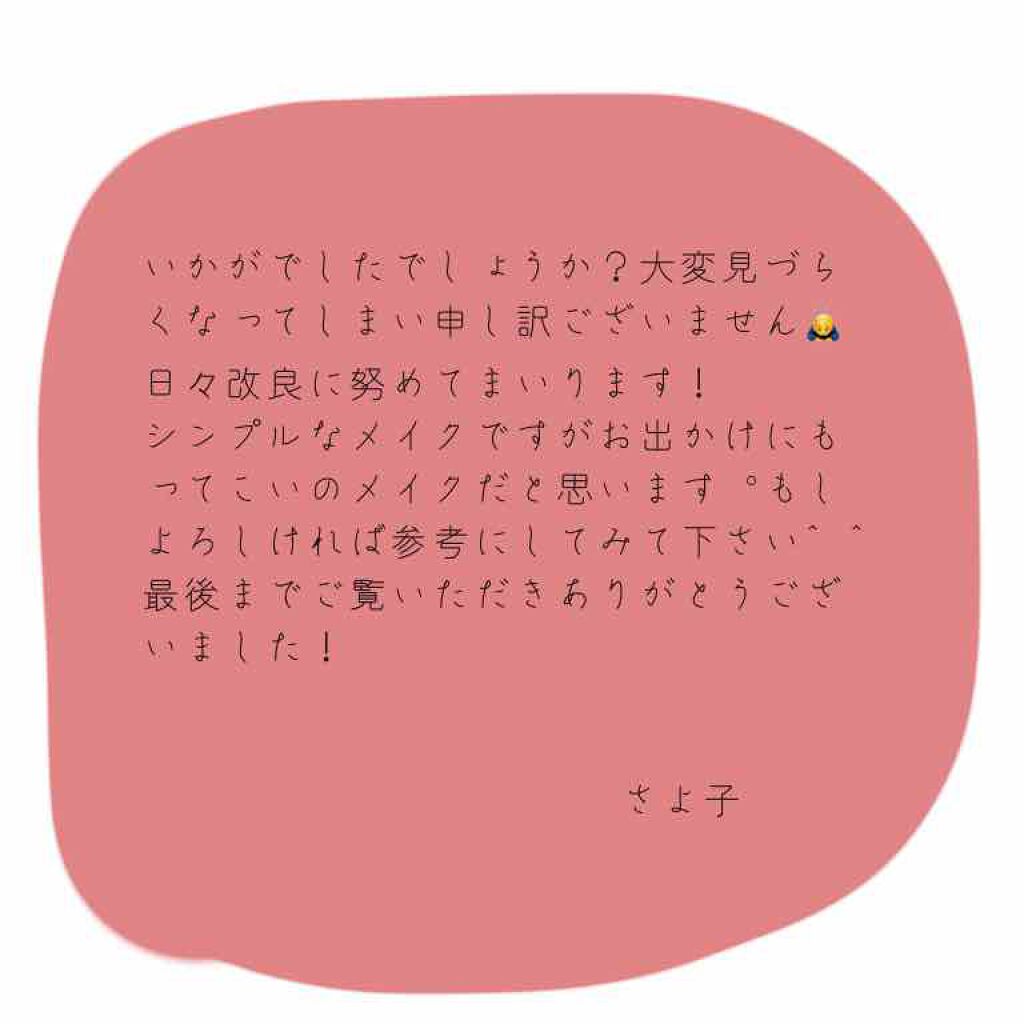 いかがでしたでしょうか？大変見づら
くなってしまい申し訳ございません🙇
日々改良に努めてまいります！
シンプルなメイクですがお出かけにも
ってこいのメイクだと思います。もし
よろしければ参考にしてみて下さい^ ^
最後までご覧いただきありがとうござ
いました！
さよ子